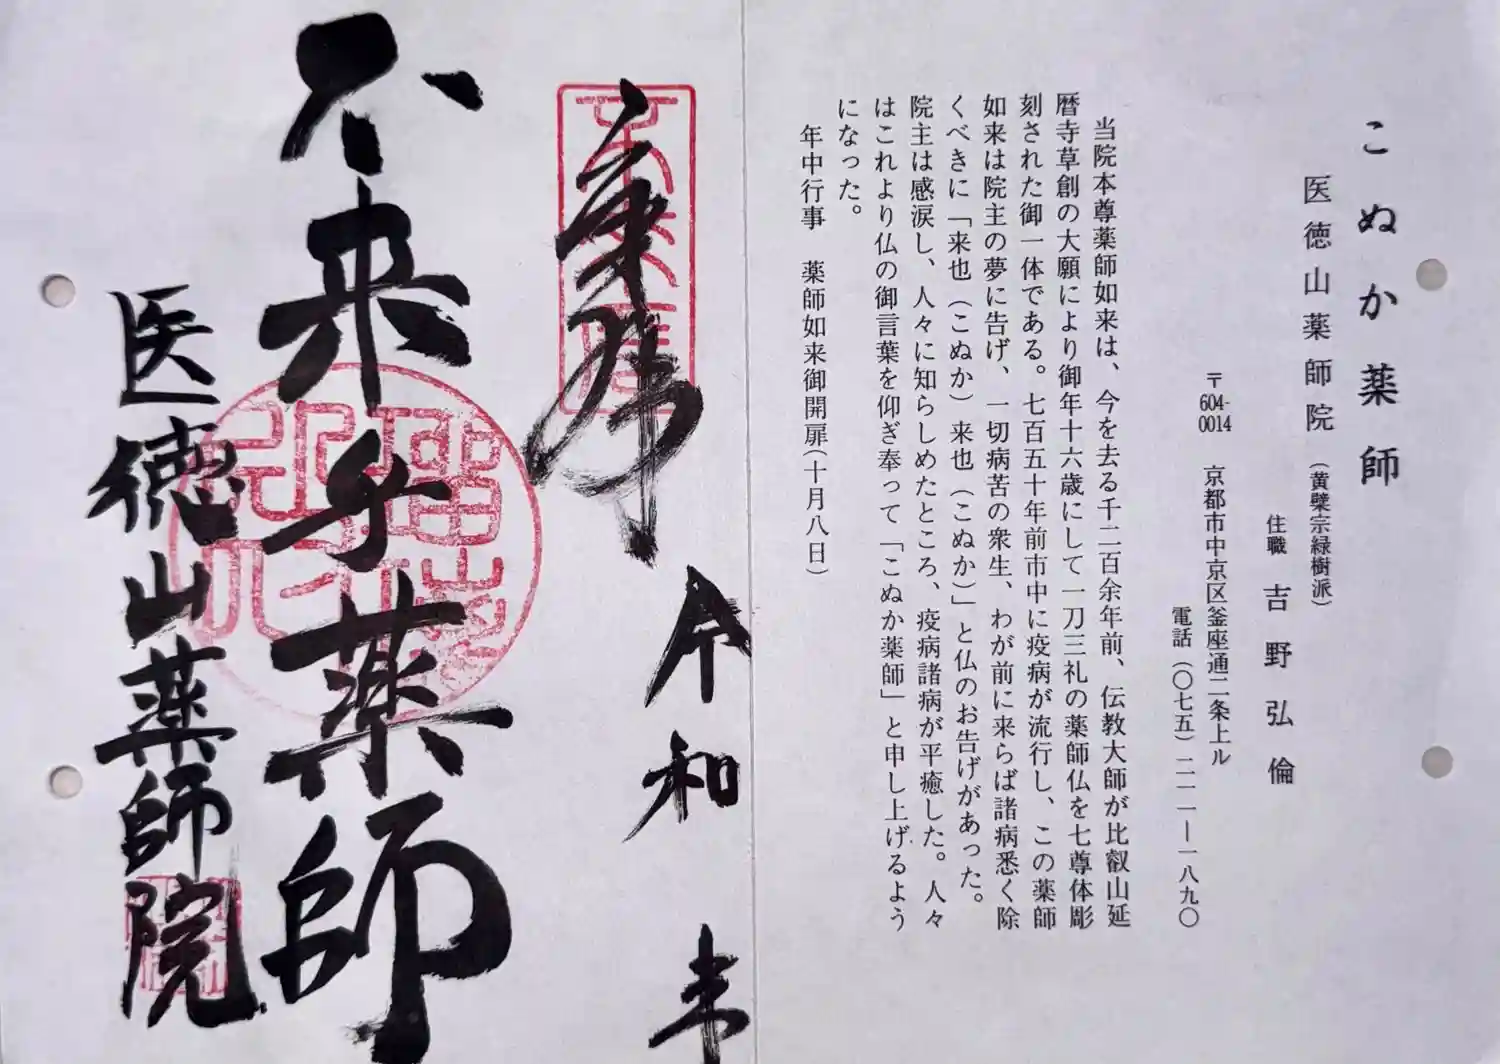 こぬか薬師
医徳山薬師院（黄檗宗緑樹派）
住職 吉野弘倫
〒604-0014 京都市中京区釜座通二条上ル
電話（〇七五）二一一―一八九〇
当院本尊薬師如来は、今を去る千二百余年前、伝教大師が比叡山延
暦寺草創の大願により御年十六歳にして一刀三礼の薬師仏を七尊体彫
刻された御一体である。七百五十年前市中に疫病が流行し、この薬師
如来は院主の夢に告げ、一切病苦の衆生、わが前に来らば諸病悉く除
くべきに「来也（こぬか）来也（こぬか）」と仏のお告げがあった。
院主は感涙し、人々に知らしめたところ、疫病諸病が平癒した。人々
はこれより仏の御言葉を仰ぎ奉って「こぬか薬師」と申し上げるよう
になった。
年中行事 薬師如来御開扉（十月八日）
奉拝
令和
不来乎薬師
医徳山薬師院